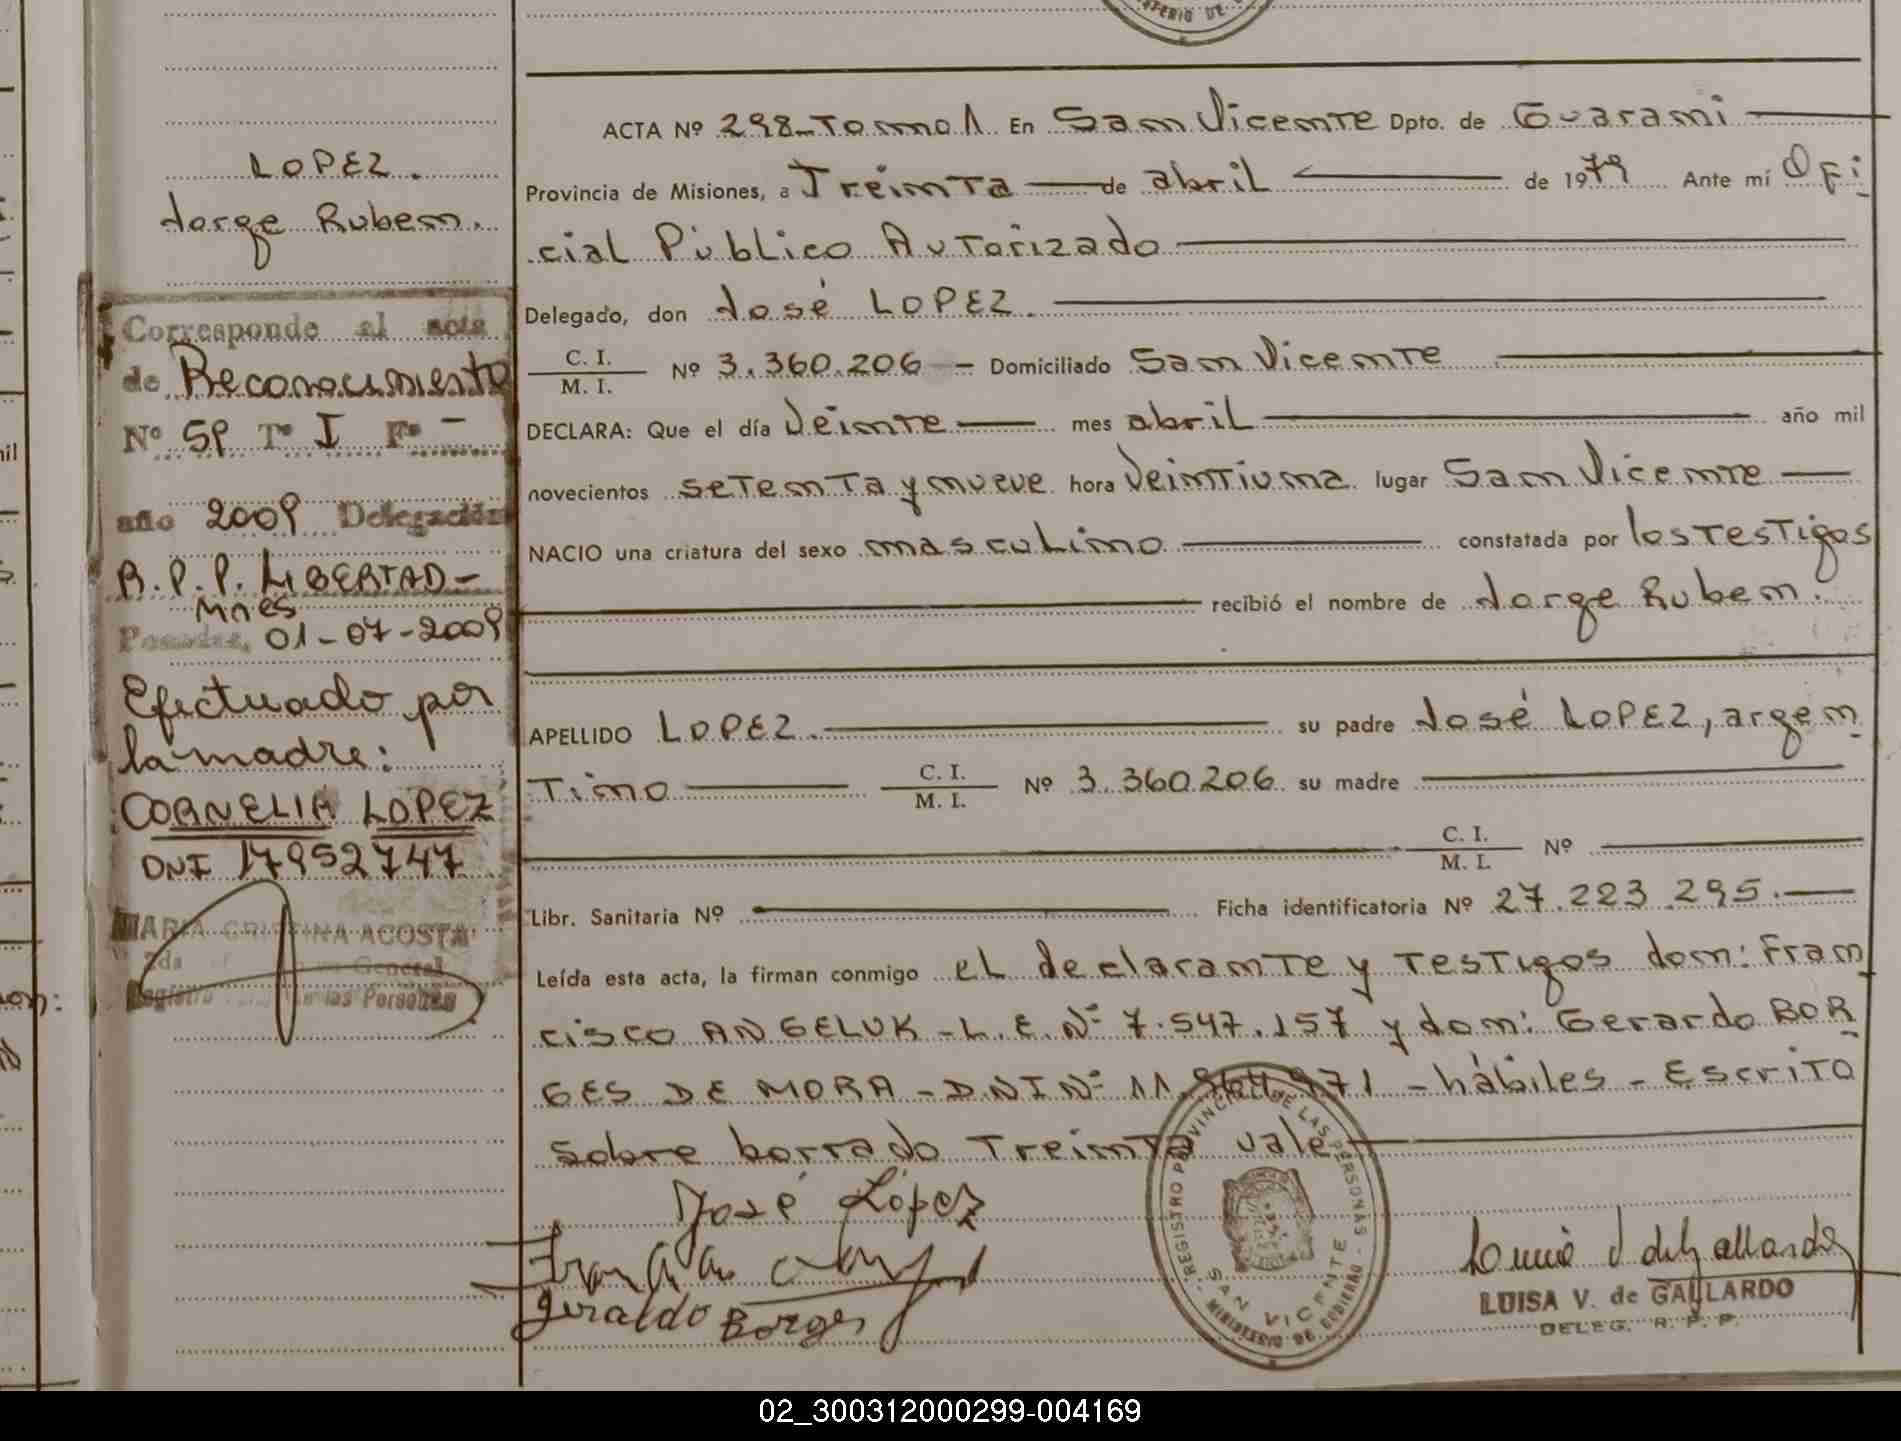 LOPEZ.
Jorge Ruben.
Corresponde al acta
de Reconocimiento
Nº 59 Tº I Fº -
año 2009 Delegación
R.P.P. LIBERTAD-
Mnes
Posadas, 01-07-2009
Efectuado por
la madre:
CORNELIA LOPEZ
DNI 17952747
MARIA CRISTINA ACOSTA
2da General
Registro de las Personas
ACTA Nº 298-Tomo 1 En San Vicente Dpto. de Guarani
Provincia de Misiones, a Treinta de abril de 1979 Ante mí Ofi
cial Público Autorizado
Delegado, don José LOPEZ.
C. I.
M. I. Nº 3.360.206 - Domiciliado San Vicente
DECLARA: Que el día Veinte mes abril año mil
novecientos setenta y nueve hora veintiuna lugar San Vicente
NACIO una criatura del sexo masculino constatada por los testigos
recibió el nombre de Jorge Ruben.
APELLIDO LOPEZ. su padre José LOPEZ, argen
tino C. I.
M. I. Nº 3.360.206 su madre
C. I.
M. I. Nº
Libr. Sanitaria Nº Ficha identificatoria Nº 27.223.295.
Leída esta acta, la firman conmigo el declarante y testigos don: Fran
cisco ANGELUK - L.E. Nº 7.547.157 y don: Gerardo BOR
GES DE MORA - D.N.I Nº 11. 971 - hábiles - Escrito
sobre borrado treinta vale
José López
Geraldo Borges
REGISTRO PROVINCIAL DE LAS PERSONAS - MINISTERIO DE GOBIERNO
SAN VICENTE
LUISA V. de GALLARDO
DELEG. R. P. P.
02_300312000299-004169